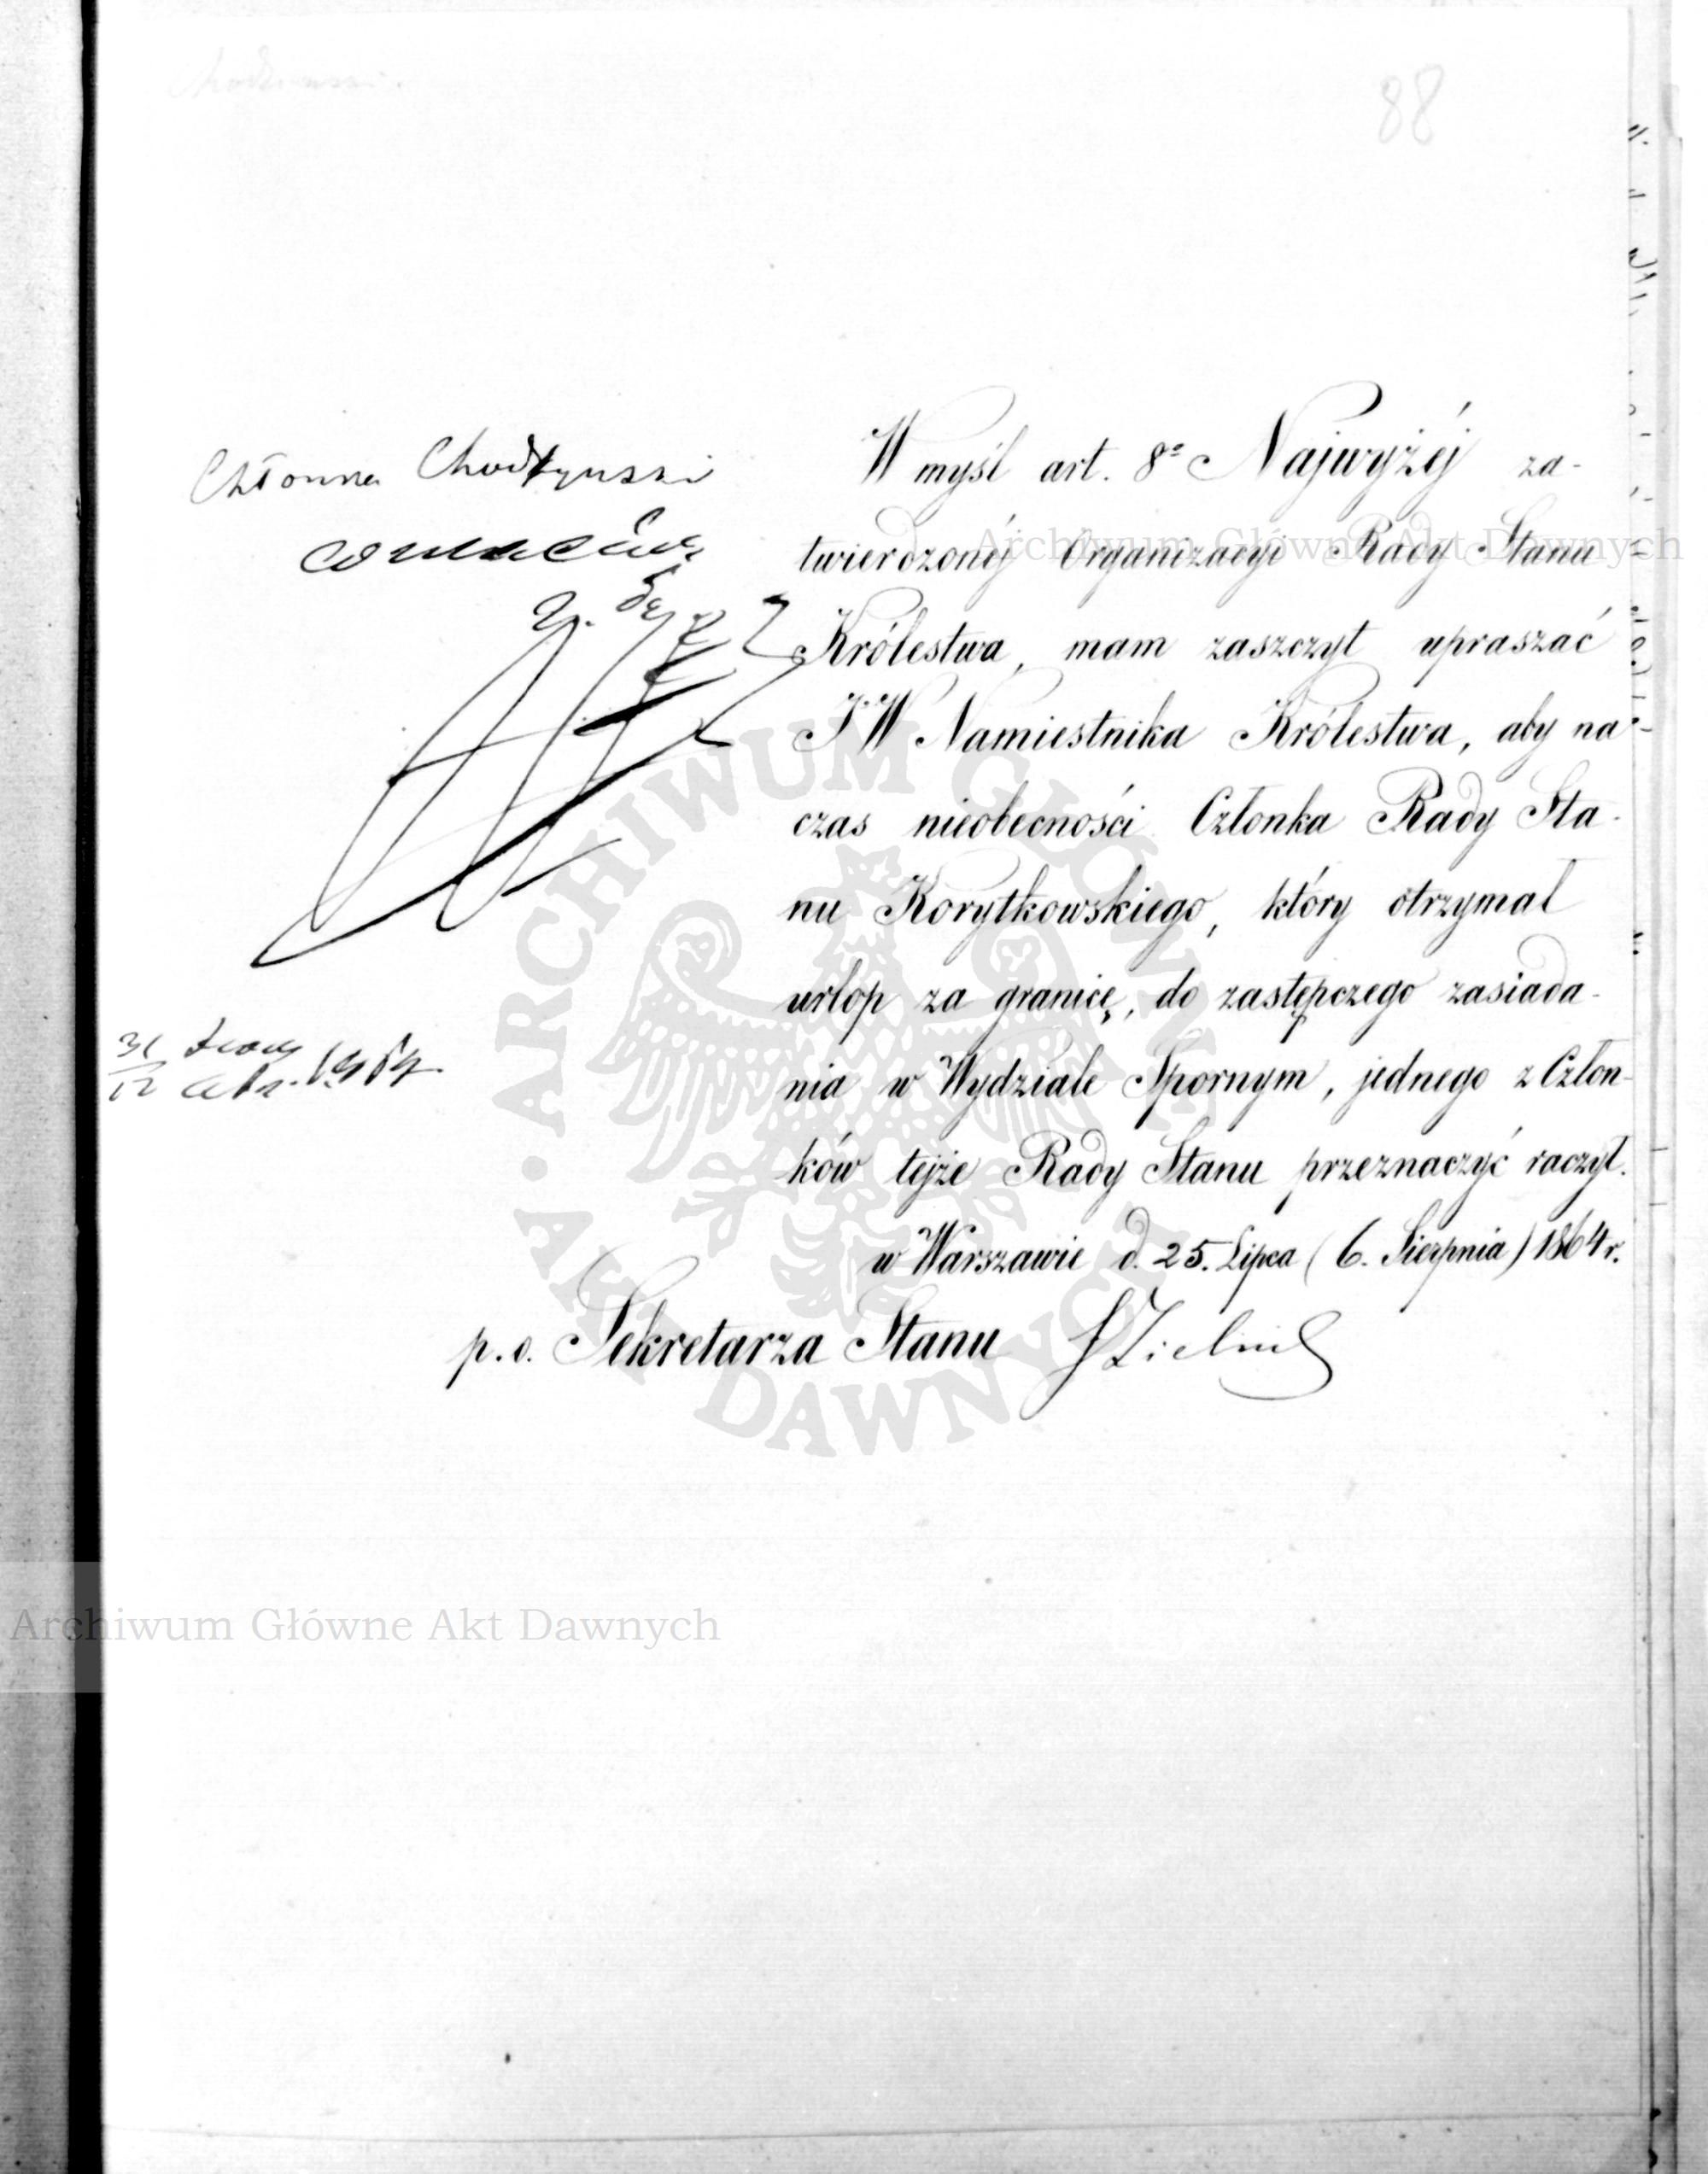 88
Członka Chodzynski
W myśl art. 8º Najwyżéj za-
twierdzonéj Organizacyi Rady Stanu
Królestwa, mam zaszczyt upraszać
JW Namiestnika Królestwa, aby na
czas nieobecności Członka Rady Sta-
nu Korytkowskiego, który otrzymał
urlop za granicę, do zastępczego zasiada-
nia w Wydziale Spornym, jednego z Człon-
ków tejże Rady Stanu przeznaczyć raczył.
w Warszawie d. 25. Lipca (6. Sierpnia) 1864 r.
p.o. Sekretarza Stanu
31
12
Archiwum Główne Akt Dawnych
Archiwum Główne Akt Dawnych
ARCHIWUM GŁÓWNE AKT DAWNYCH